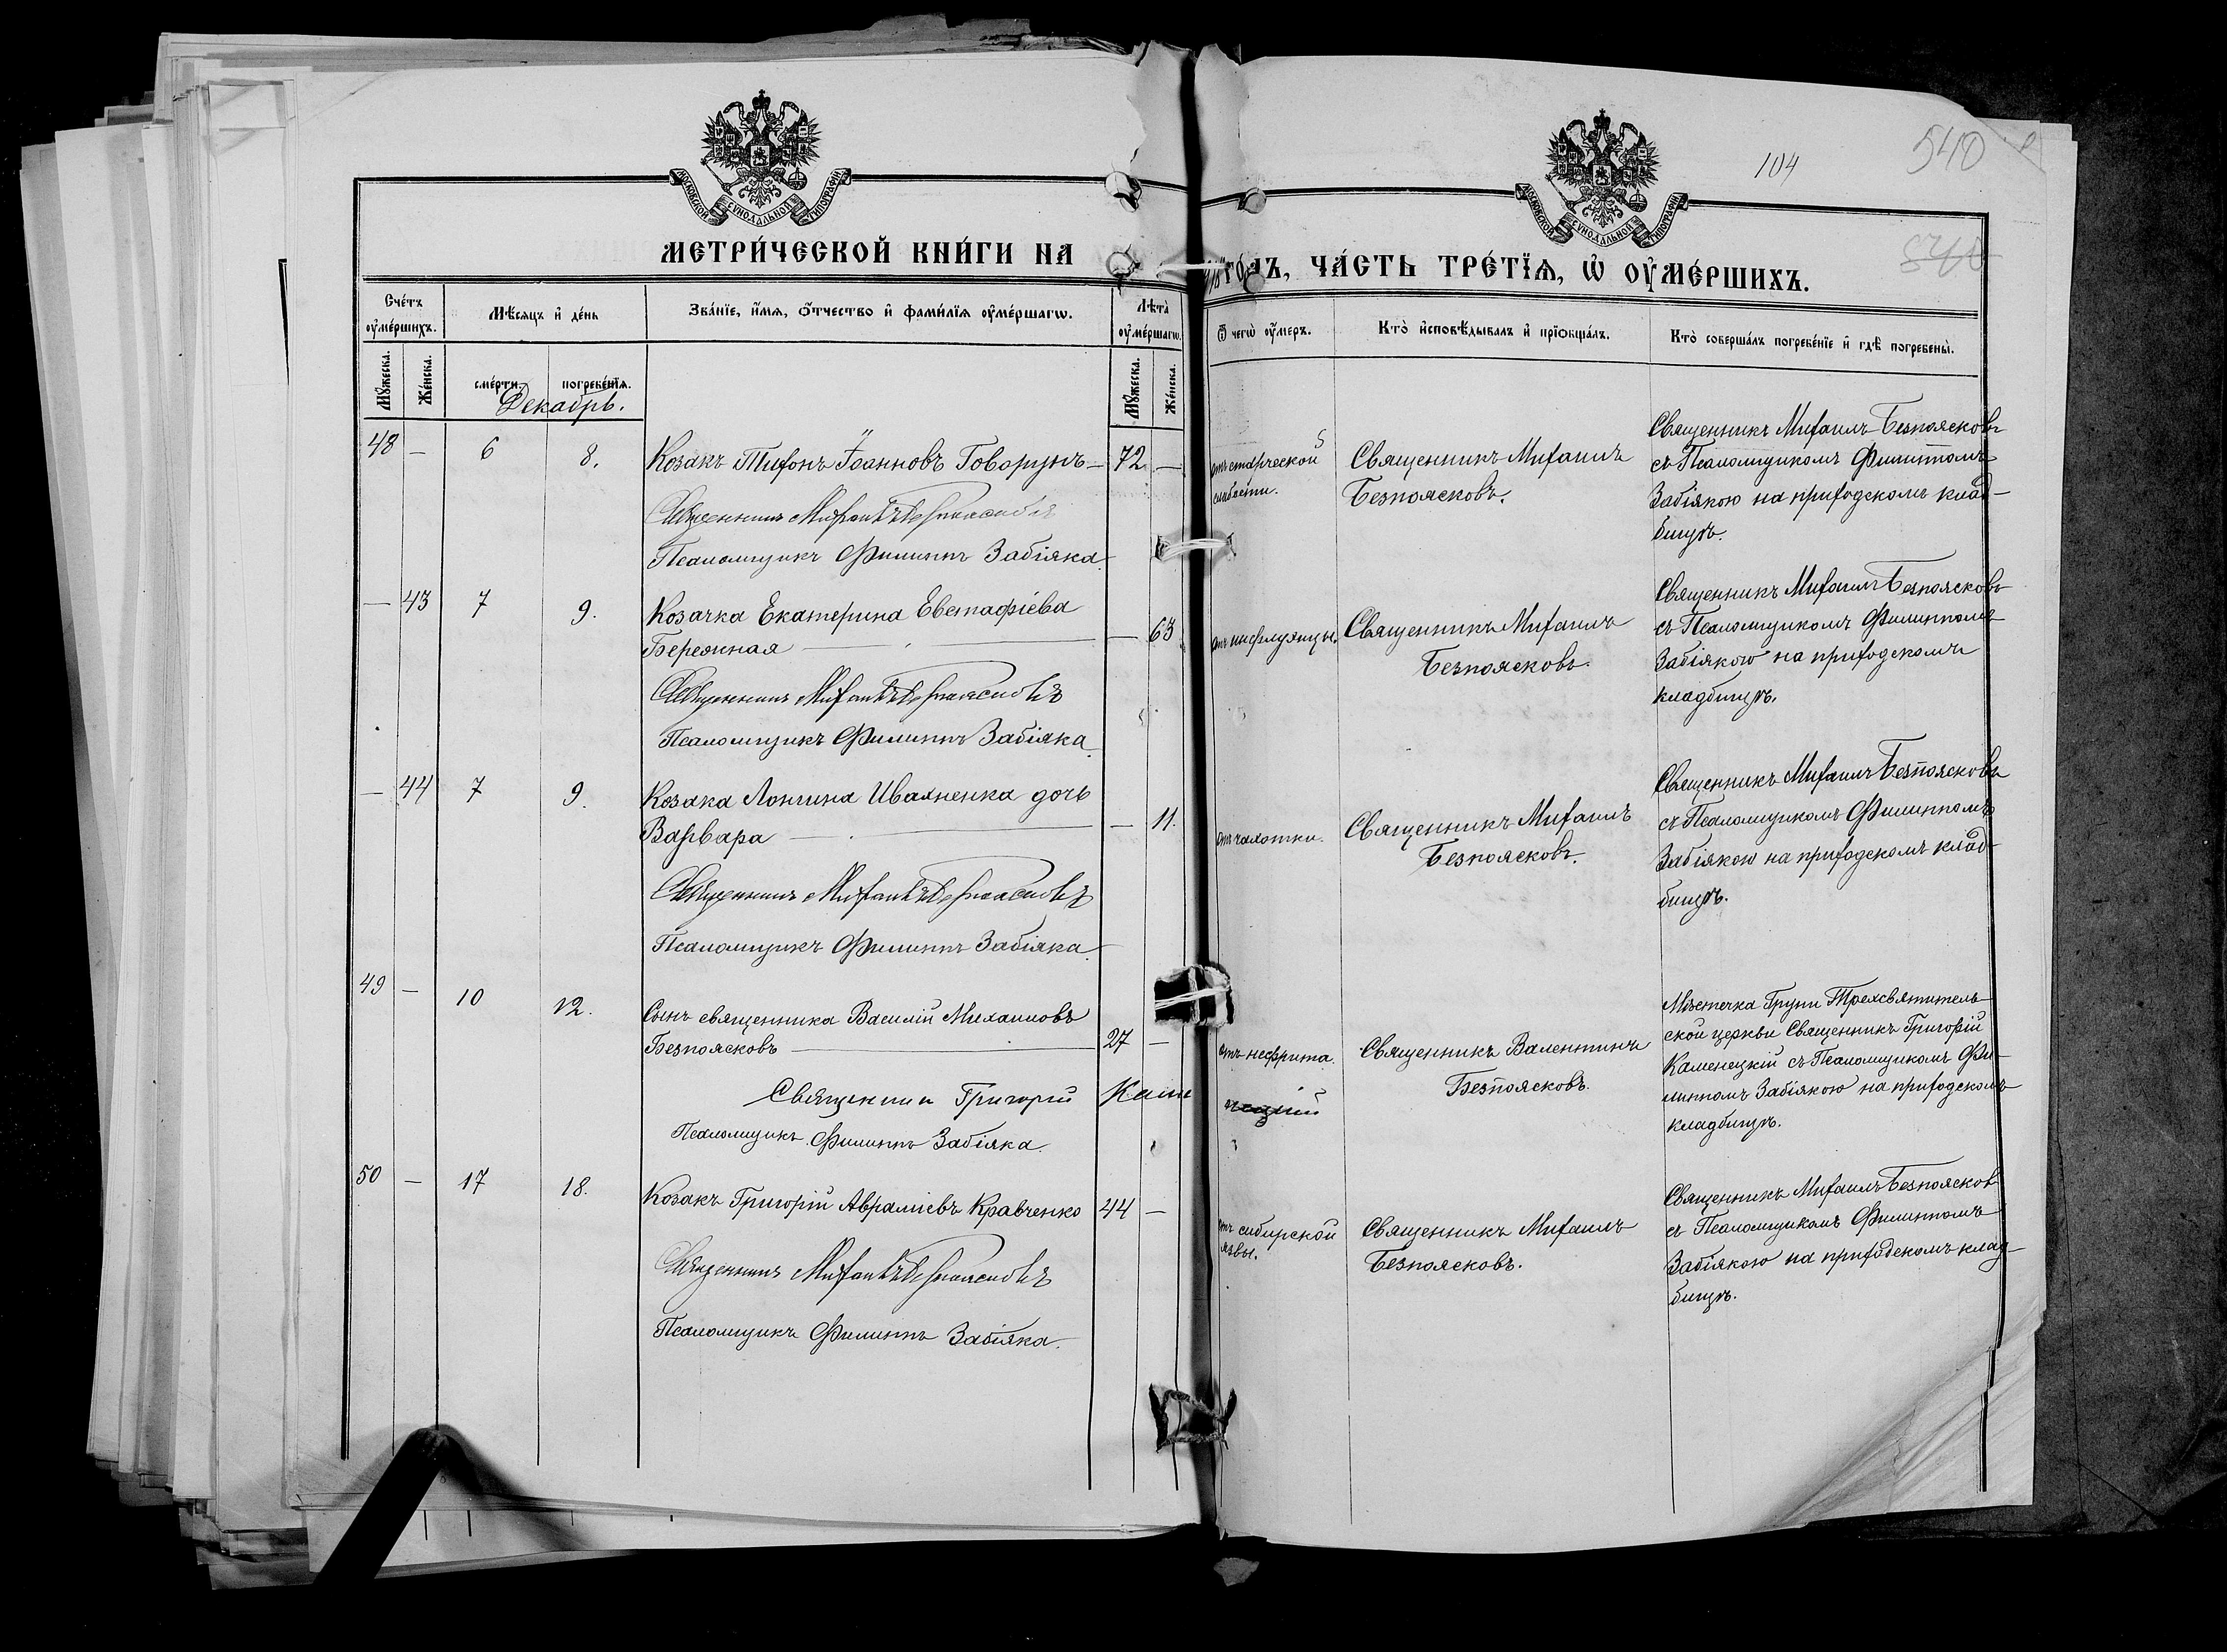 104
540
540
МОСКОВСКОЙ СѴНОДАЛЬНОЙ ТИПОГРАФІИ
МОСКОВСКОЙ СѴНОДАЛЬНОЙ ТИПОГРАФІИ
МЕТРИ́ЧЕСКОЙ КНИ́ГИ НА
го́дъ, ЧА́СТЬ ТРЕ́ТЇѦ, Ѡ҆ ОУ҆МЕ́РШИХЪ.
Сче́тъ оу҆ме́ршихъ.
Мѣ́сяцъ и҆ де́нь
Зва́нїе, и҆́мѧ, ѻ҆́тчество и҆ фами́лїѧ оу҆ме́ршагѡ.
Лѣ́та оу҆ме́ршагѡ.
Ѿ чегѡ̀ оу҆́меръ.
Кто̀ и҆сповѣ́дывалъ и҆ прїѡбща́лъ.
Кто̀ соверша́лъ погребе́нїе и҆ гдѣ̀ погребены̀.
Мꙋ́жеска.
Же́нска.
сме́рти.
погребе́нїѧ.
Мꙋ́жеска.
Же́нска.
Декабрь.
48 — 6 8.
Козакъ Тихонъ Іоанновъ Говорунъ — 72 —
Священникъ Михаилъ Безпоясковъ
Псаломщикъ Филиппъ Забіяка.
отъ старческой
слабости.
Священникъ Михаилъ
Безпоясковъ.
Священникъ Михаилъ Безпоясковъ
съ Псаломщикомъ Филиппомъ
Забіякою на приходскомъ клад-
бищѣ.
— 43 7 9.
Козачка Екатерина Евстафіева
Бережная — — 63
Священникъ Михаилъ Безпоясковъ
Псаломщикъ Филиппъ Забіяка.
отъ инфлуэнцы.
Священникъ Михаилъ
Безпоясковъ.
Священникъ Михаилъ Безпоясковъ
съ Псаломщикомъ Филиппомъ
Забіякою на приходскомъ
кладбищѣ.
— 44 7 9.
Козака Лонгина Иваненка дочь
Варвара — — 11.
Священникъ Михаилъ Безпоясковъ
Псаломщикъ Филиппъ Забіяка.
отъ чахотки.
Священникъ Михаилъ
Безпоясковъ.
Священникъ Михаилъ Безпоясковъ
съ Псаломщикомъ Филиппомъ
Забіякою на приходскомъ клад-
бищѣ.
49 — 10 12.
Сынъ священника Василій Михаиловъ
Безпоясковъ — 27 —
Священникъ Григорій Каме
нецкій
Псаломщикъ Филиппъ Забіяка.
отъ нефрита.
Священникъ Валентинъ
Безпоясковъ.
Мѣстечка Груни Трехсвятитель-
ской церкви Священникъ Григорій
Каменецкій съ Псаломщикомъ Фи-
липпомъ Забіякою на приходскомъ
кладбищѣ.
50 — 17 18.
Козакъ Григорій Авраміевъ Кравченко 44 —
Священникъ Михаилъ Безпоясковъ
Псаломщикъ Филиппъ Забіяка.
отъ сибирской
язвы.
Священникъ Михаилъ
Безпоясковъ.
Священникъ Михаилъ Безпоясков
съ Псаломщикомъ Филиппомъ
Забіякою на приходскомъ клад-
бищѣ.